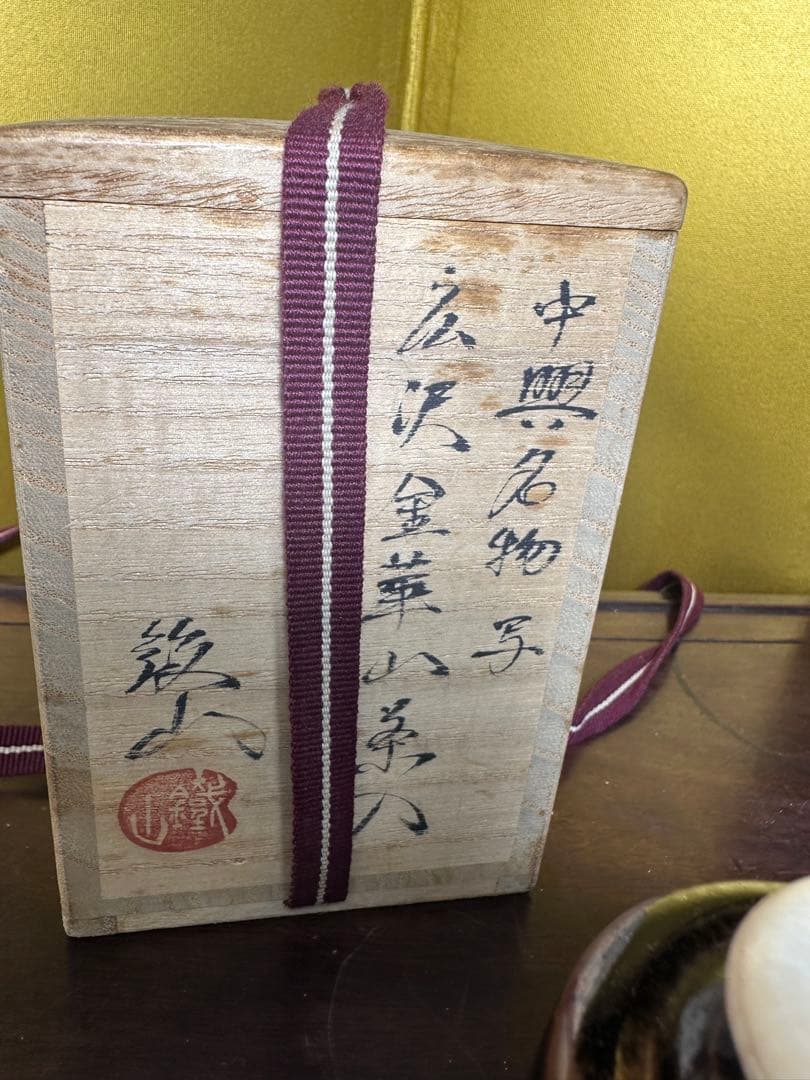 中興名物写
広沢金華山茶入
鉄山
鐵山